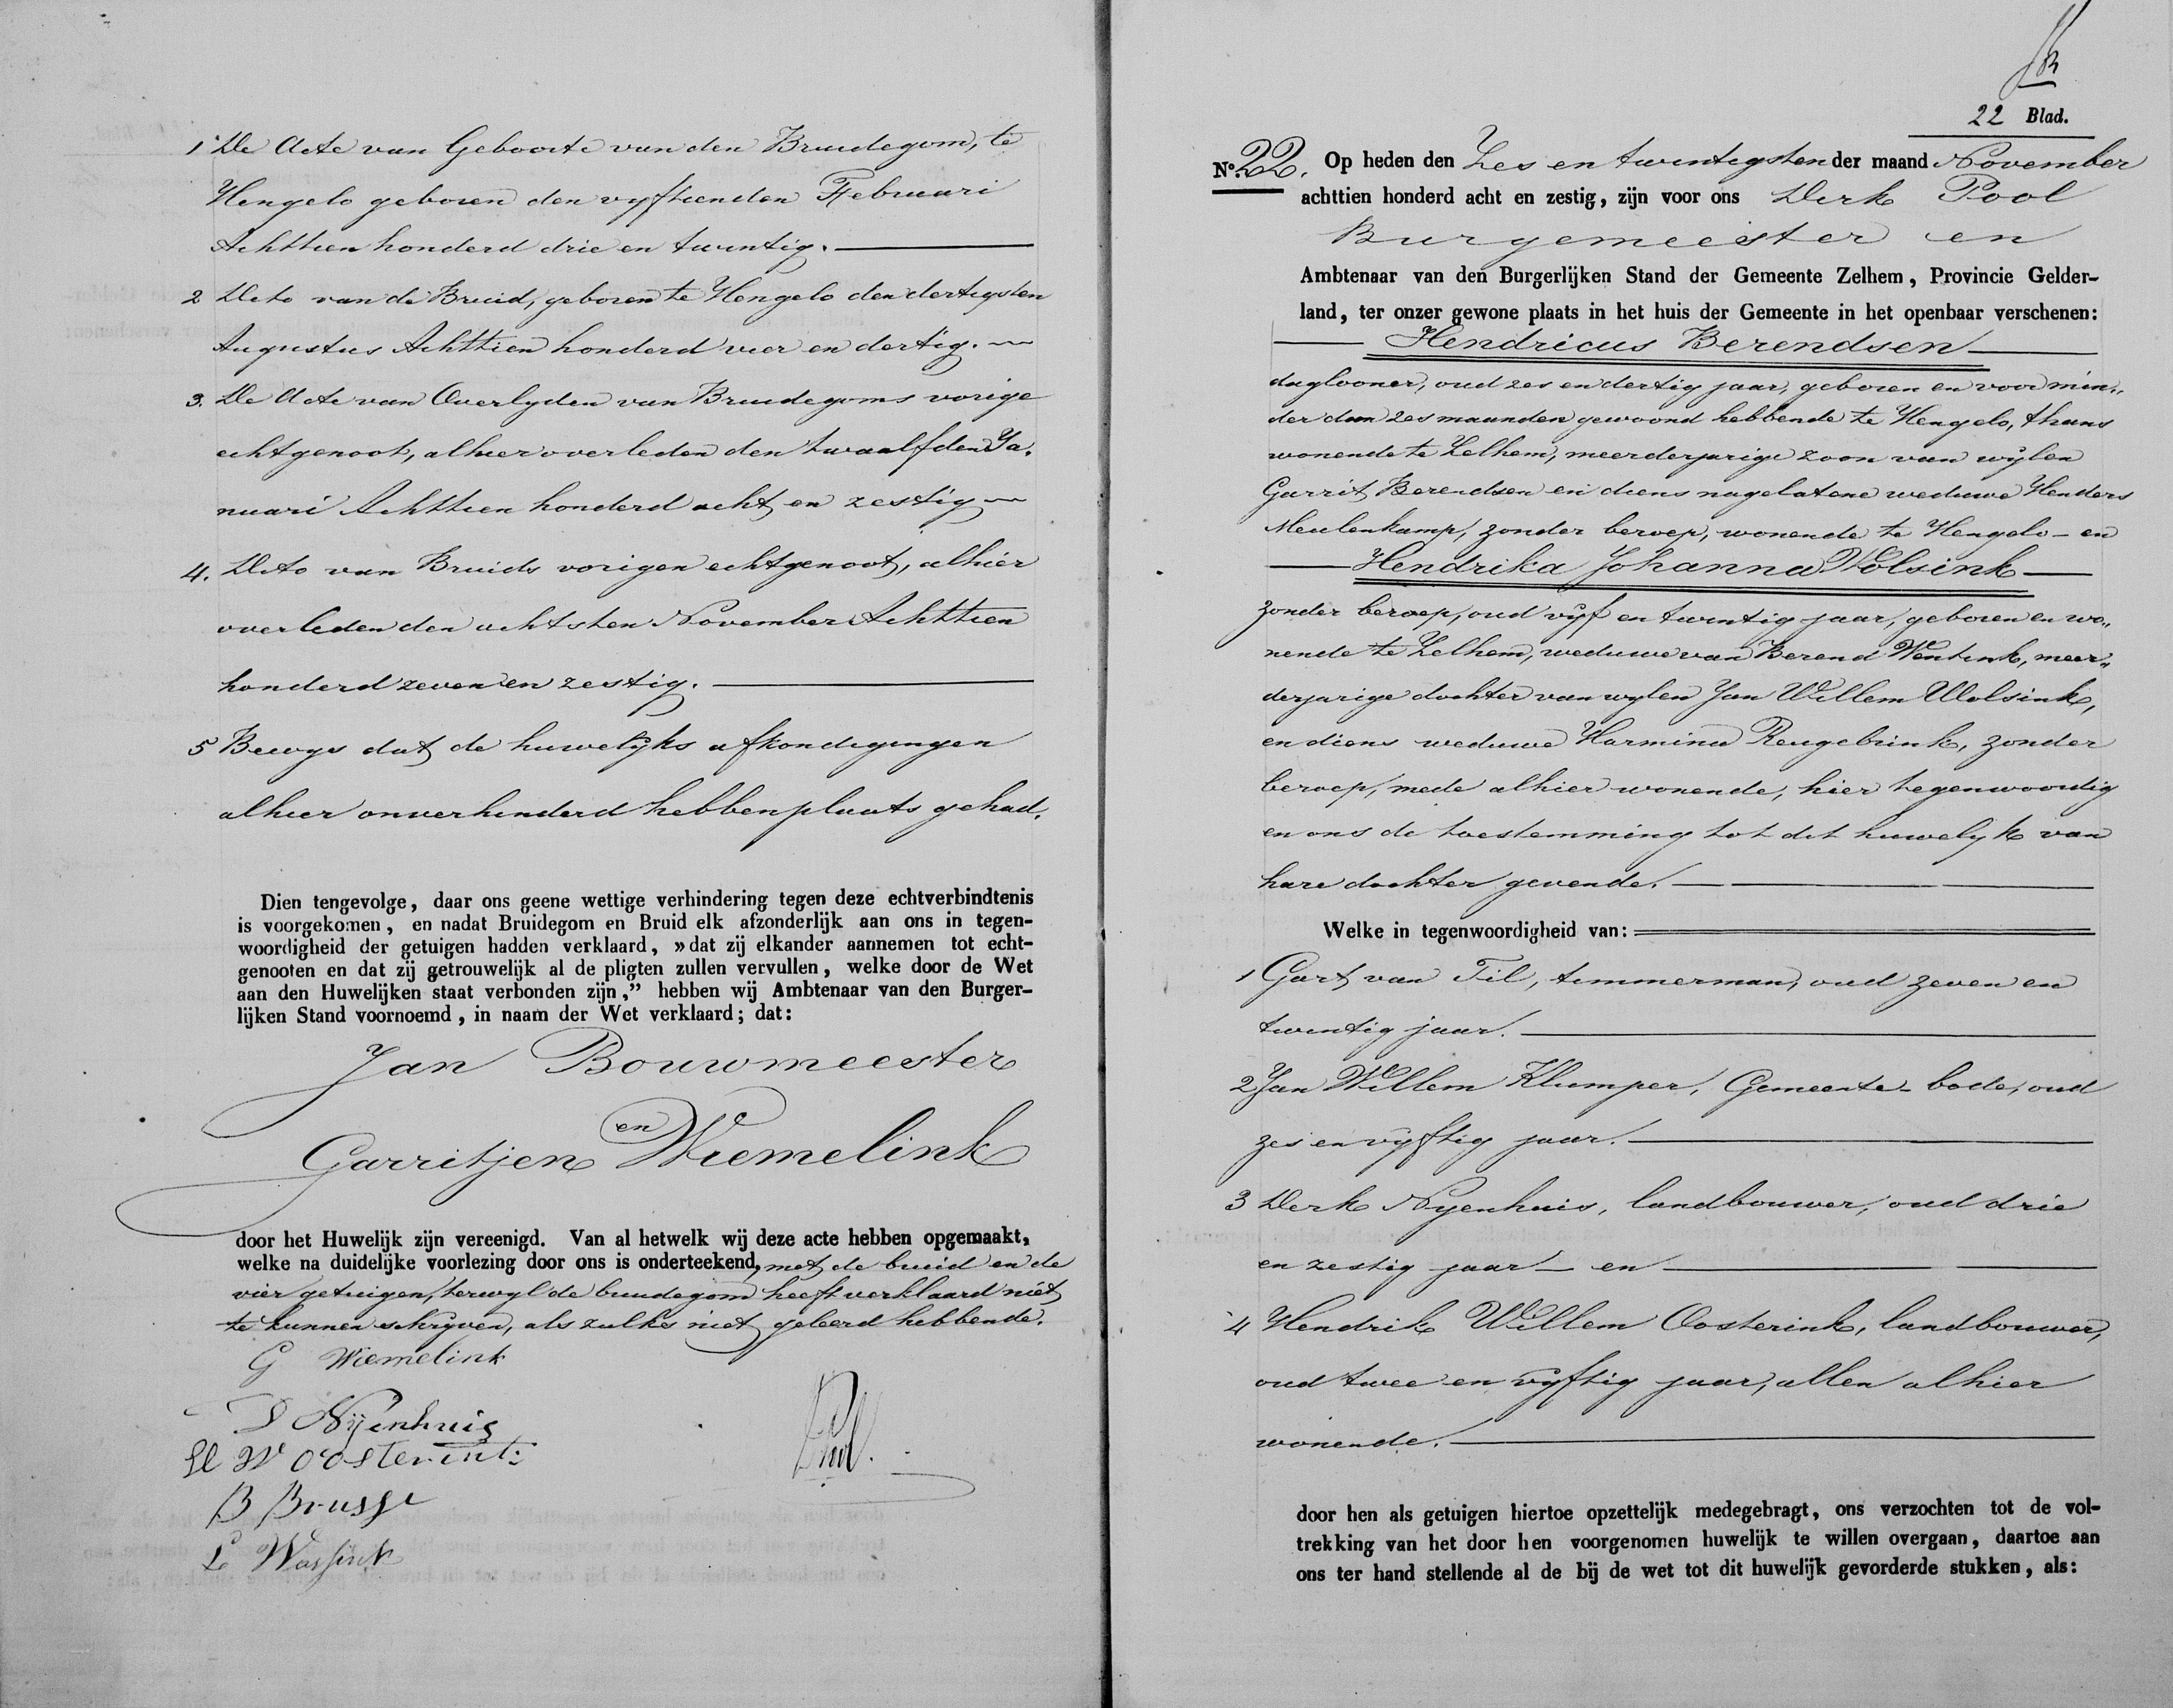 1 De Acte van Geboorte van den Bruidegom, te
Hengelo geboren den vyftienden Februari
Achttien honderd drie en twintig.
2 Dito van de Bruid, geboren te Hengelo den dertigsten
Augustus Achttien honderd vier en dertig.
3. De Acte van Overlyden van Bruidegoms vorige
echtgenoot, alhier overleden den twaalfden Ja-
nuari Achttien honderd acht en zestig
4. Dito van Bruids vorigen echtgenoot, alhier
overleden den achtsten November Achttien
honderd zeven en zestig.
5 Bewys dat de huwelijks afkondigingen
alhier onverhinderd hebben plaats gehad.
Dien tengevolge, daar ons geene wettige verhindering tegen deze echtverbindtenis
is voorgekomen, en nadat Bruidegom en Bruid elk afzonderlijk aan ons in tegen-
woordigheid der getuigen hadden verklaard, »dat zij elkander aannemen tot echt-
genooten en dat zij getrouwelijk al de pligten zullen vervullen, welke door de Wet
aan den Huwelijken staat verbonden zijn,” hebben wij Ambtenaar van den Burger-
lijken Stand voornoemd, in naam der Wet verklaard; dat:
Jan Bouwmeester
en
Garritjen Wiemelink
door het Huwelijk zijn vereenigd. Van al hetwelk wij deze acte hebben opgemaakt,
welke na duidelijke voorlezing door ons is onderteekend, met de bruid en de
vier getuigen, terwyl de bruidegom heeft verklaard niet
te kunnen schryven, als zulks niet geleerd hebbende.
G Wiemelink
D Nijenhuis
H W Oosterink
B Brusse
L Wassink
DPool.
22 Blad.
No. 22. Op heden den Zes en twintigsten der maand November
achttien honderd acht en zestig, zijn voor ons Derk Pool
Burgemeester en
Ambtenaar van den Burgerlijken Stand der Gemeente Zelhem, Provincie Gelder-
land, ter onzer gewone plaats in het huis der Gemeente in het openbaar verschenen:
Hendricus Berendsen
daglooner, oud zes en dertig jaar, geboren en voor min-
der dan zes maanden gewoond hebbende te Hengelo, thans
wonende te Zelhem, meerderjarige zoon van wylen
Garrit Berendsen en diens nagelatene weduwe Henders
Meulenkamp, zonder beroep, wonende te Hengelo - en
Hendrika Johanna Wolsink
zonder beroep, oud vyf en twintig jaar, geboren en wo-
nende te Zelhem, weduwe van Berend Wentink, meer-
derjarige dochter van wylen Jan Willem Wolsink,
en diens weduwe Harmina Rengebrink, zonder
beroep, mede alhier wonende, hier tegenwoordig
en ons de toestemming tot dit huwelyk van
hare dochter gevende.
Welke in tegenwoordigheid van:
1 Gart van Til, timmerman, oud zeven en
twintig jaar.
2 Jan Willem Klumper, Gemeente-bode, oud
zes en vyftig jaar.
3 Derk Nyenhuis, landbouwer, oud drie
en zestig jaar - en
4 Hendrik Willem Oosterink, landbouwer,
oud twee en vyftig jaar, allen alhier
wonende.
door hen als getuigen hiertoe opzettelijk medegebragt, ons verzochten tot de vol-
trekking van het door hen voorgenomen huwelijk te willen overgaan, daartoe aan
ons ter hand stellende al de bij de wet tot dit huwelijk gevorderde stukken, als: